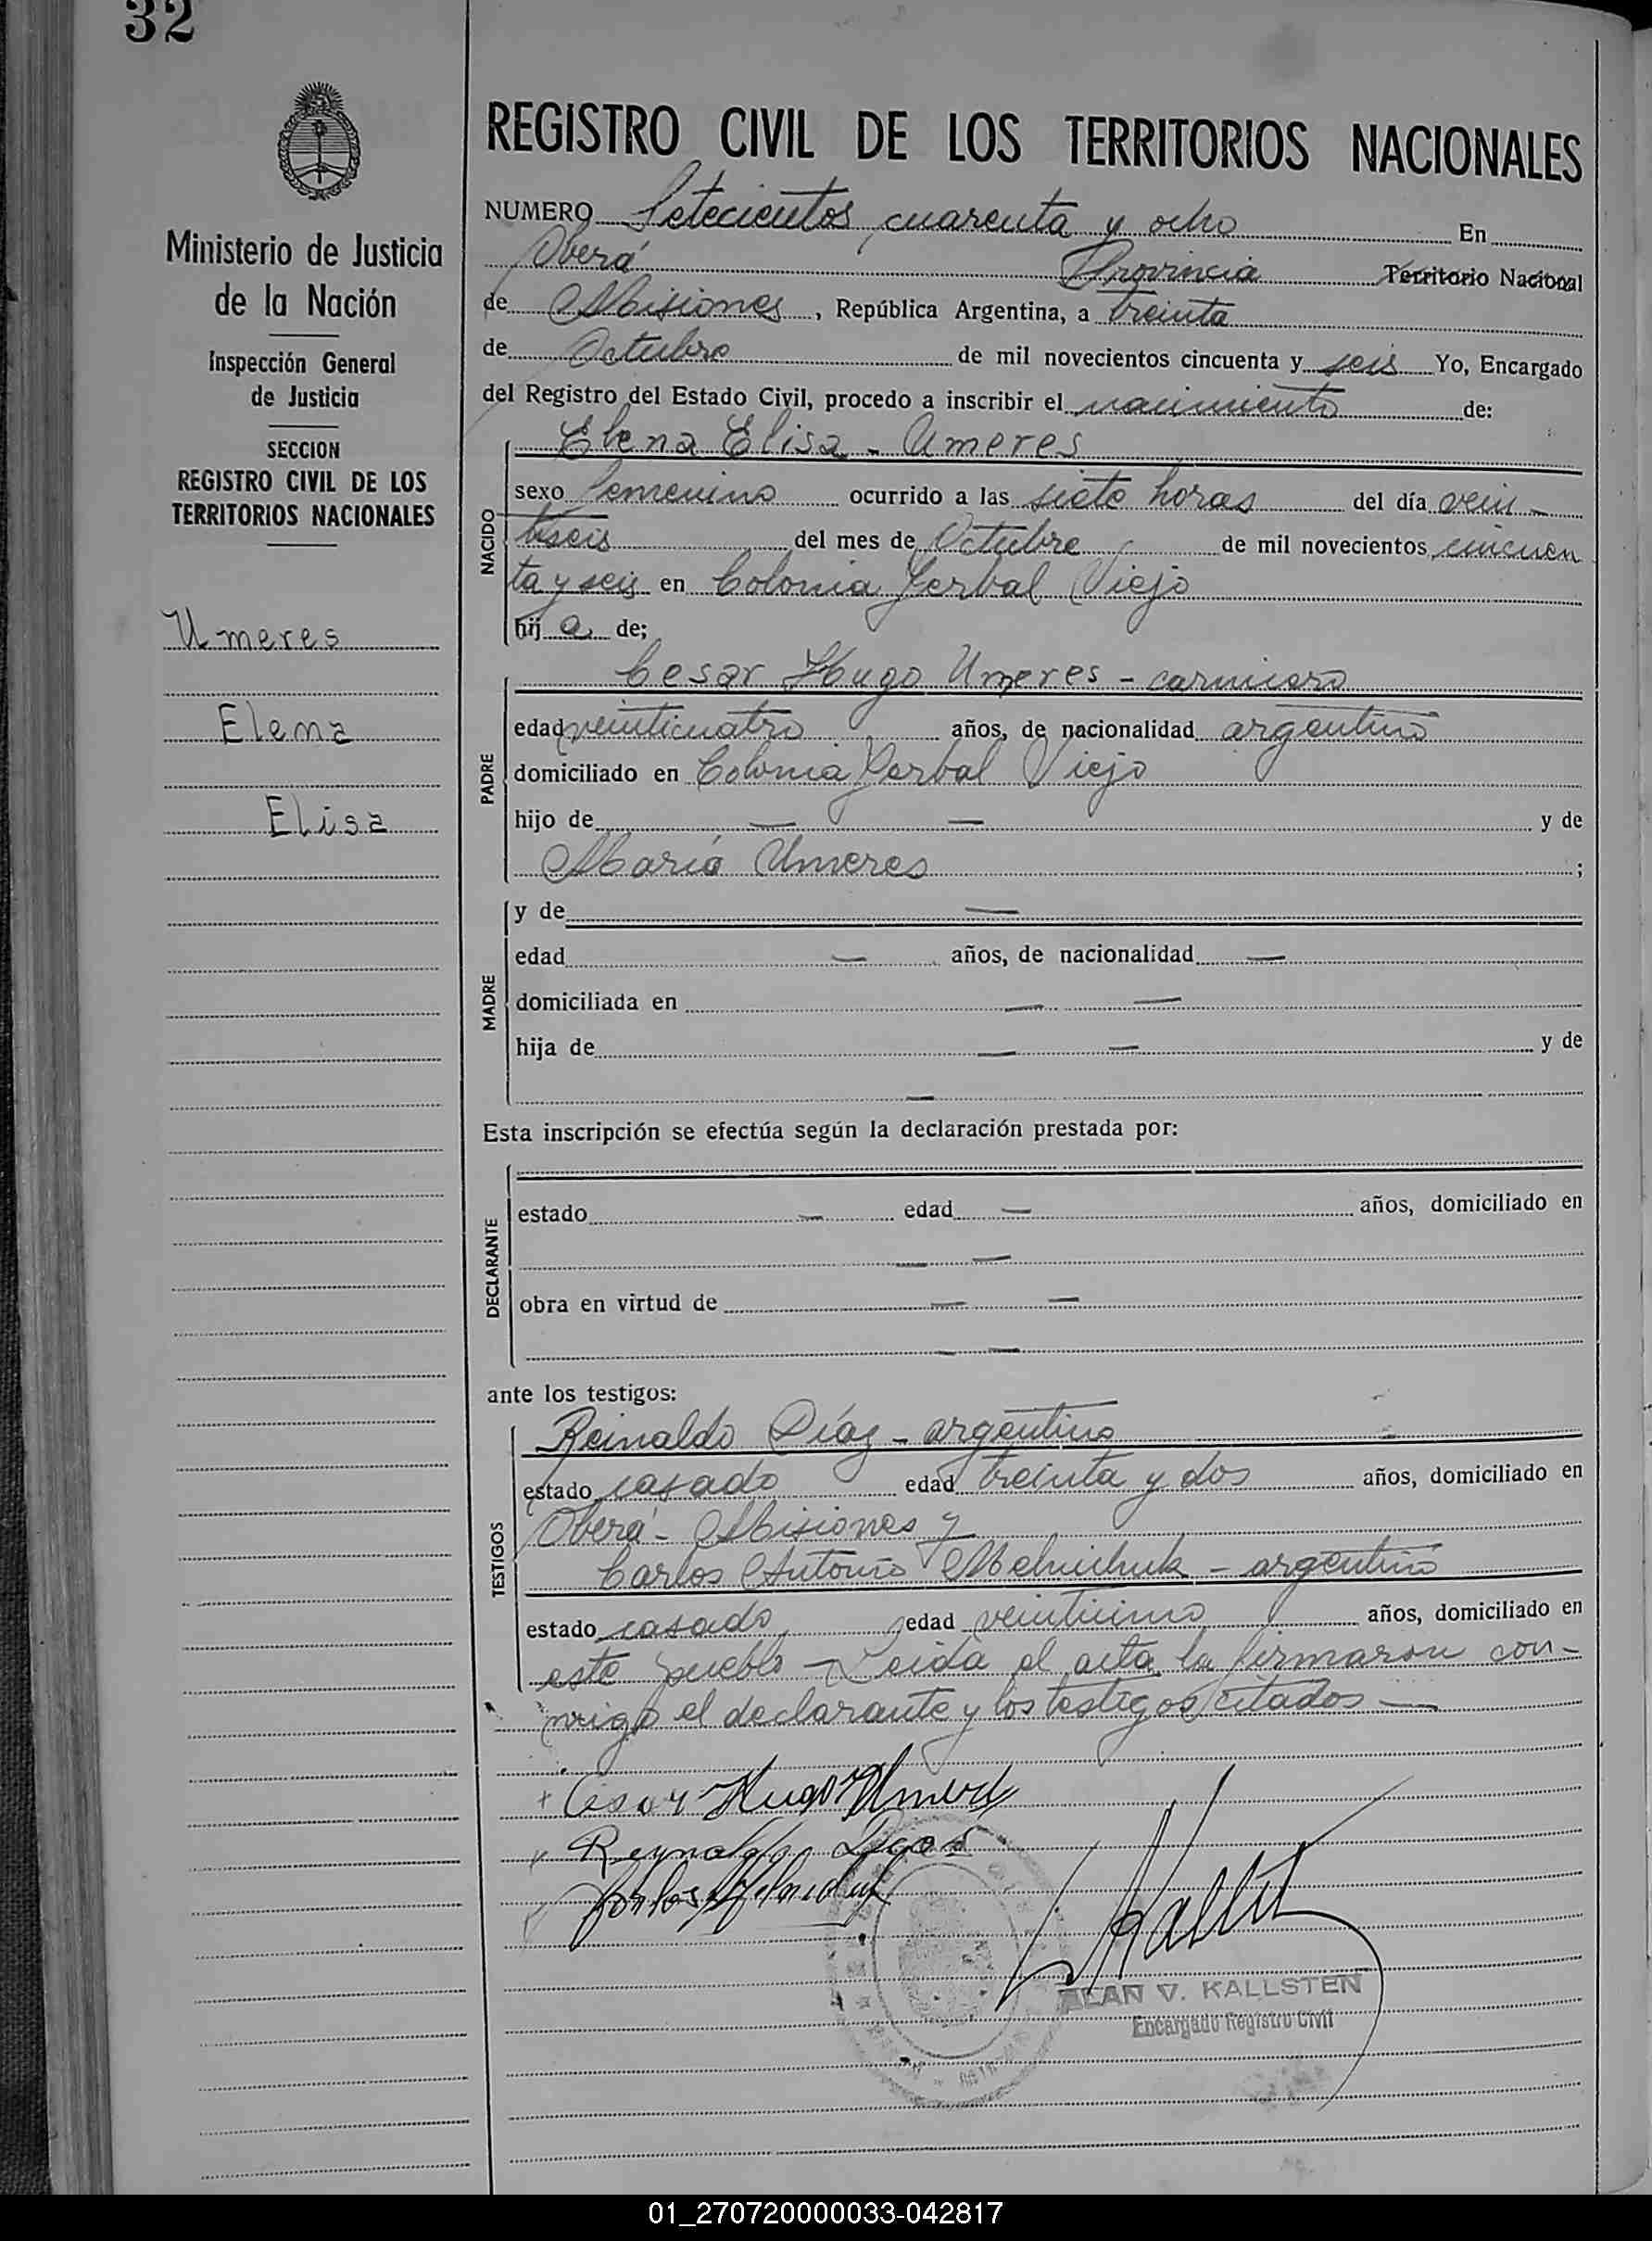 32
Ministerio de Justicia
de la Nación
Inspección General
de Justicia
SECCION
REGISTRO CIVIL DE LOS
TERRITORIOS NACIONALES
Umeres
Elena
Elisa
REGISTRO CIVIL DE LOS TERRITORIOS NACIONALES
NUMERO Setecientos cuarenta y ocho En
Oberá Provincia Territorio Nacional
de Misiones, República Argentina, a treinta
de Octubre de mil novecientos cincuenta y seis Yo, Encargado
del Registro del Estado Civil, procedo a inscribir el nacimiento de:
Elena Elisa - Umeres
NACIDO
sexo femenino ocurrido a las siete horas del día vein-
tiseis del mes de Octubre de mil novecientos cincuen
ta y seis en Colonia Yerbal Viejo
hij a de;
Cesar Hugo Umeres - carnicero
PADRE
edad veinticuatro años, de nacionalidad argentino
domiciliado en Colonia Yerbal Viejo
hijo de — — y de
María Umeres ;
MADRE
y de —
edad — años, de nacionalidad —
domiciliada en — —
hija de — — y de
—
Esta inscripción se efectúa según la declaración prestada por:
DECLARANTE
estado — edad — años, domiciliado en
— —
obra en virtud de — —
— —
ante los testigos:
TESTIGOS
Reinaldo Díaz - argentino
estado casado edad treinta y dos años, domiciliado en
Oberá - Misiones y
Carlos Antonio Melnichuk - argentino
estado casado edad años, domiciliado en
este pueblo - Leida el acta la firmaron con-
migo el declarante y los testigos citados —
+ Cesar Hugo Umeres
ALAN V. KALLSTEN
Encargado Registro Civil
01_270720000033-042817